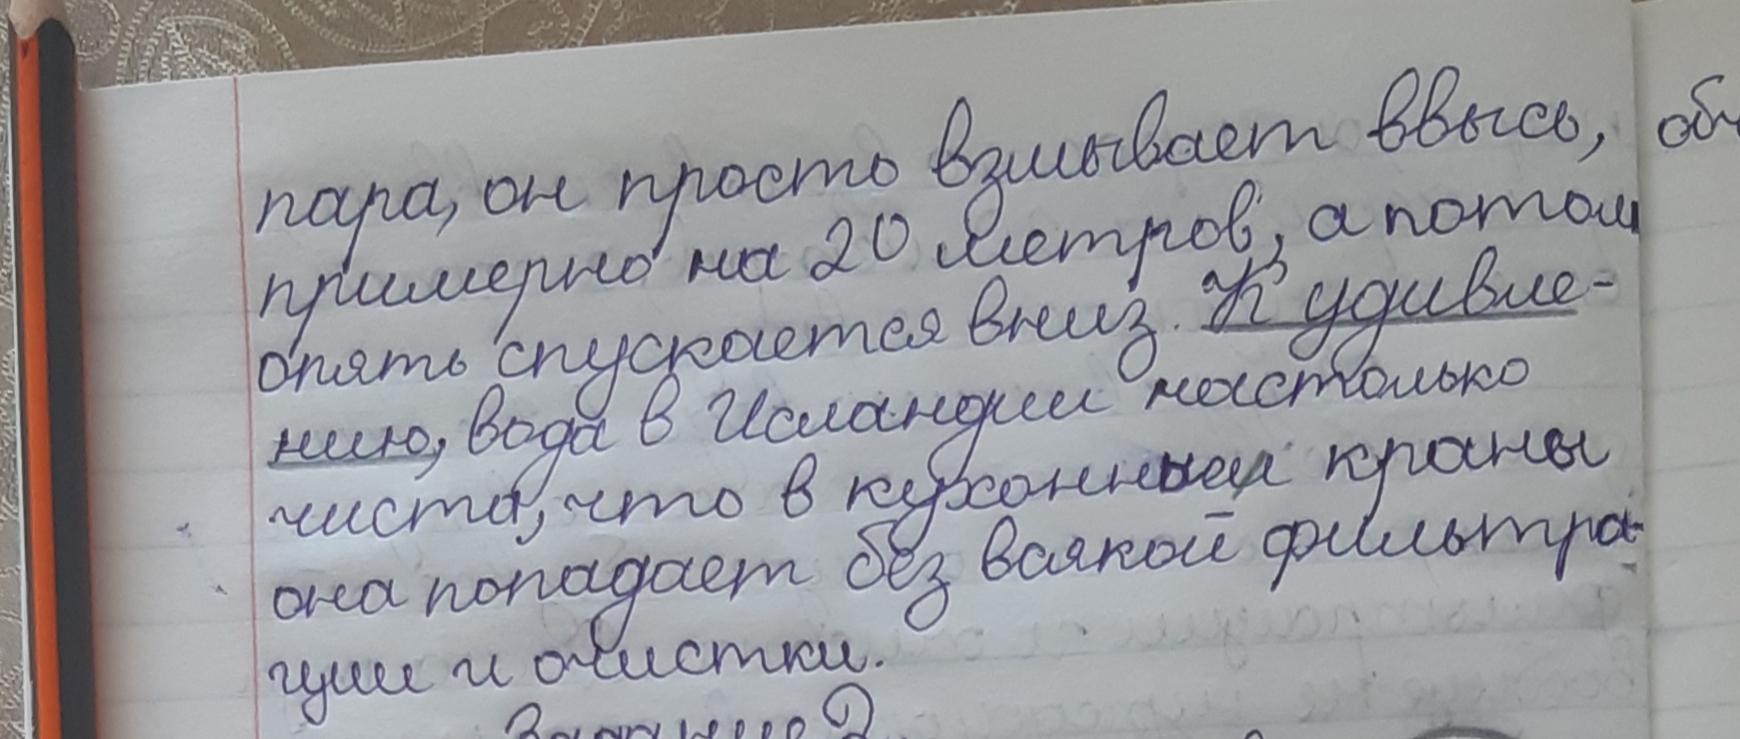 пара, он просто взмывает ввысь,
примерно на 20 метров, а потом
опять спускается вниз. К удивле-
нию, вода в Исландии настолько
чиста, что в кухонные краны
она попадает без всякой фильтра-
ции и очистки.
Задание 2